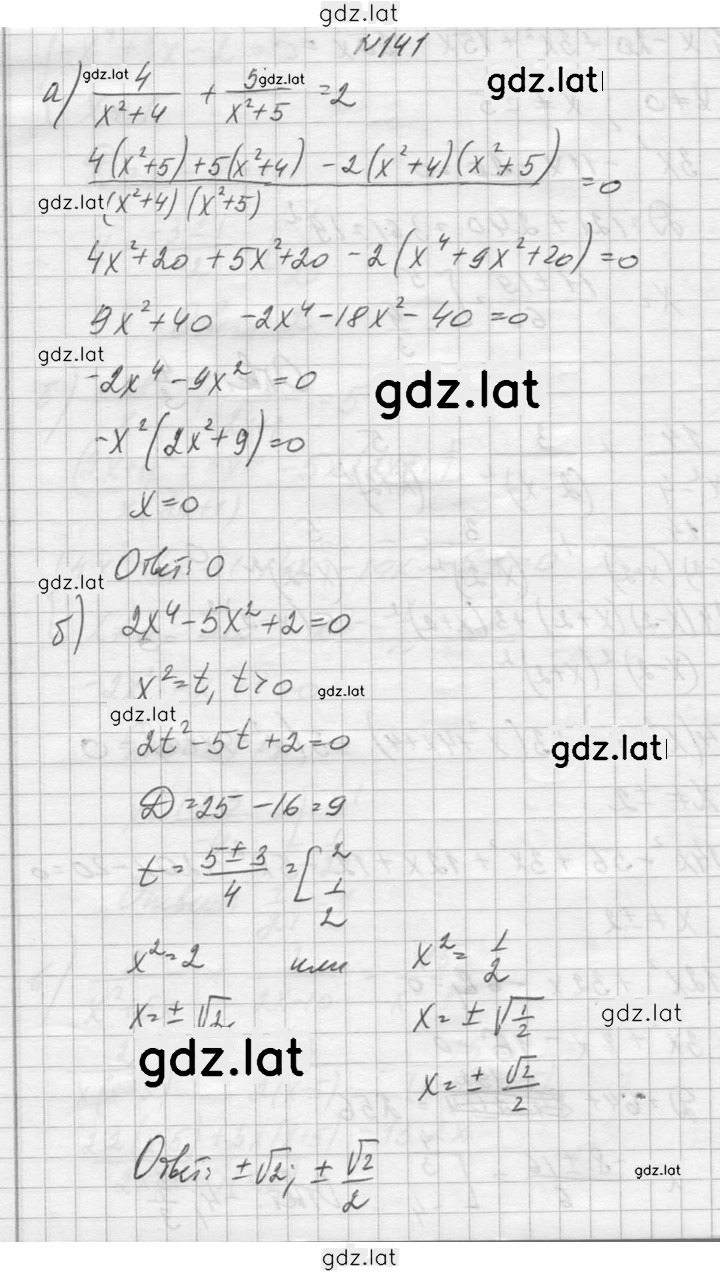 gdz.lat
№141
а) 4/(x²+4) + 5/(x²+5) = 2
gdz.lat gdz.lat gdz.lat
(4(x²+5)+5(x²+4) -2(x²+4)(x²+5))/((x²+4)(x²+5)) = 0
gdz.lat
4x²+20 +5x²+20 -2(x⁴+9x²+20)=0
9x²+40 -2x⁴-18x²-40=0
gdz.lat
-2x⁴-9x² =0
gdz.lat
-x²(2x²+9)=0
x=0
Ответ: 0
gdz.lat
б) 2x⁴-5x²+2=0
x²=t, t>0 gdz.lat
gdz.lat
2t²-5t+2=0 gdz.lat
D=25-16=9
t= (5±3)/4 =[2 1/2
x²=2 или x²= 1/2
x=±√2 x=±√(1/2) gdz.lat
gdz.lat
x=± √2/2
Ответ: ±√2; ± √2/2 gdz.lat
gdz.lat